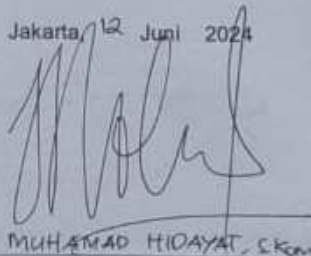 Jakarta, 12 Juni 2024
MUHAMAD HIDAYAT, S.Kom